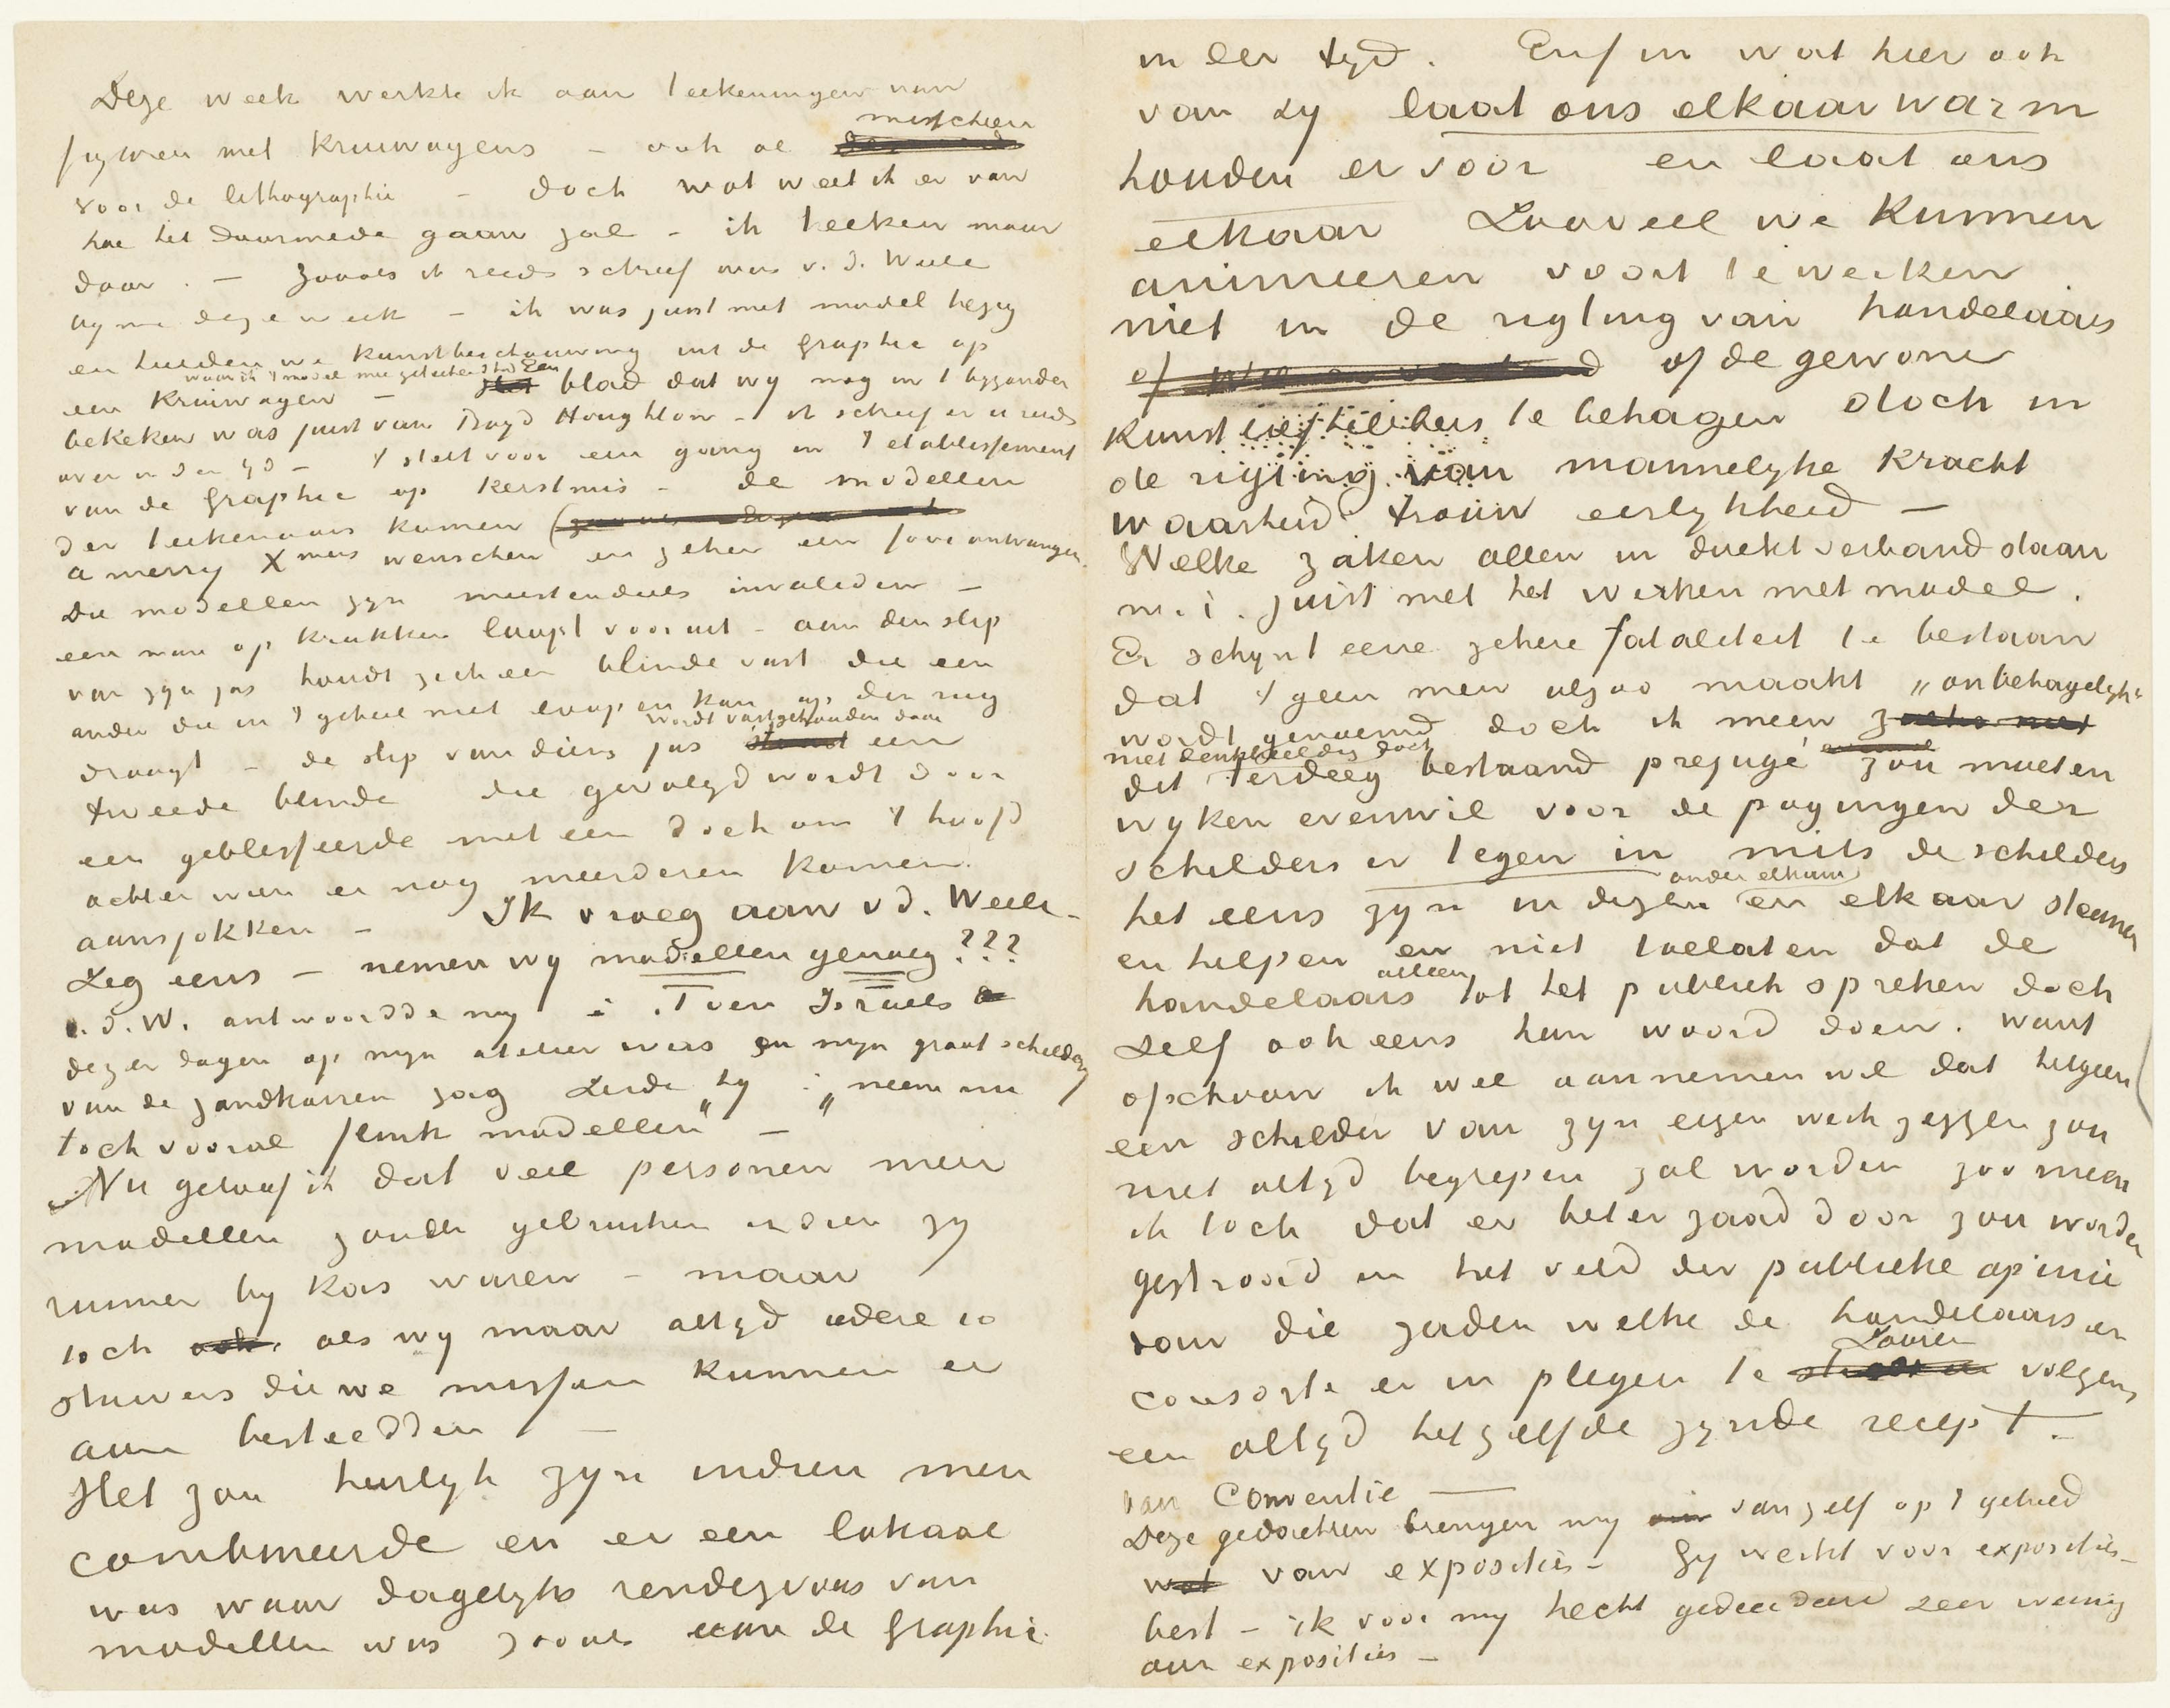 Deze week werkte ik aan teekeningen van
misschien
figuren met kruiwagens – ook al
voor de lithographie – doch wat weet ik er van
hoe het daarmede gaan zal – ik teeken maar
door. – Zooals ik reeds schreef was v. d. Weele
by me deze week – ik was juist met model bezig
en hielden we kunstbeschouwing uit de Graphic op
waar ik 't model mee geteekend had Een
een kruiwagen – blad dat wy nog in 't byzonder
bekeken was juist van Boyd Houghton – ik schreef er u reeds
over in der tyd – 't stelt voor een gang in 't etablissement
van de Graphic op kerstmis – de modellen
der teekenaars komen
a merry Xmas wenschen en zeker een fooi ontvangen.
Die modellen zyn meerendeels invaliden –
een man op krukken loopt vooruit – aan den slip
van zyn jas houdt zich een blinde vast die een
ander die in 't geheel niet loopen kan op den rug
wordt vastgehouden door
draagt – de slip van diens jas een
tweede blinde die gevolgd wordt door
een geblesseerde met een doek om 't hoofd
achter wien er nog meerderen komen
aansjokken – Ik vroeg aan v d. Weele –
Zeg eens – nemen wy modellen genoeg???
v. d. W. antwoordde my : Toen Israels
dezer dagen op myn atelier was en myn groot schildery
van de zandkarren zag zeide hy : „neem nu
toch vooral flink modellen" –
Nu geloof ik dat veel personen meer
modellen zouden gebruiken indien zy
ruimer by kas waren – maar
toch als wy maar altyd iedere 10
stuivers die we missen kunnen er
aan besteedden –
Het zou heerlyk zyn indien men
combineerde en er een lokaal
was waar dagelyks rendezvous van
modellen was zooals aan de Graphic
in der tyd. Enfin wat hier ook
van zy laat ons elkaar warm
houden er voor en laat ons
elkaar zooveel we kunnen
animeeren voort te werken
niet in de rigting van handelaars
of of de gewone
kunstliefhebbers te behagen doch in
de rigting van mannelyke kracht
waarheid trouw eerlykheid –
Welke zaken allen in direkt verband staan
m. i. juist met het werken met model.
Er schynt eene zekere fataliteit te bestaan
dat 't geen men alzoo maakt „onbehagelyk"
wordt genoemd doch ik meen
niet denkbeeldig doch
dit terdeeg bestaand prejugé zou moeten
wyken evenwel voor de pogingen der
schilders er tegen in mits de schilders
onder elkaar
het eens zyn in dezen en elkaar steunen
en helpen en niet toelaten dat de
alleen
handelaars tot het publiek spreken doch
zelf ook eens hun woord doen. want
ofschoon ik wel aannemen wil dat hetgeen
een schilder van zyn eigen werk zeggen zou
niet altyd begrepen zal worden zoo meen
ik toch dat er beter zaad door zou worden
gestrooid in het veld der publieke opinie
dan die zaden welke de handelaars en
Zaaien
consorte er in plegen te volgens
een altyd hetzelfde zynde recept –
van Conventie
Deze gedachten brengen my van zelf op 't gebied
van exposities – Gy werkt voor exposities –
best – ik voor my hecht gedecideerd zeer weinig
aan exposities –